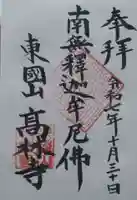 奉拝
令和七年十月三十日
南無釋迦牟尼佛
東國山
高林寺